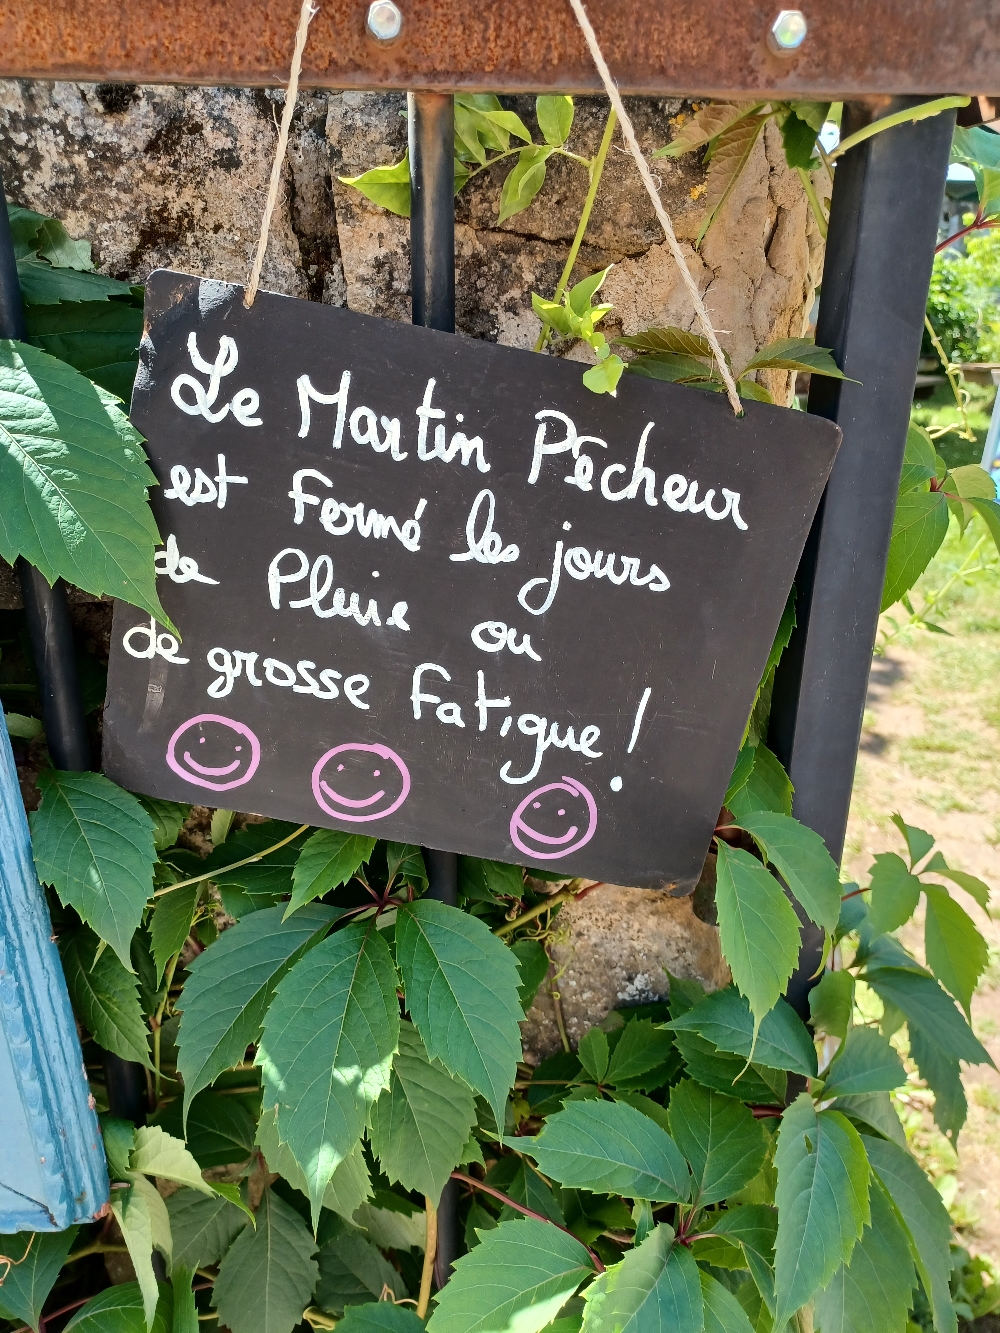 Le Martin Pêcheur
est fermé les jours
de Pluie ou
de grosse fatigue !